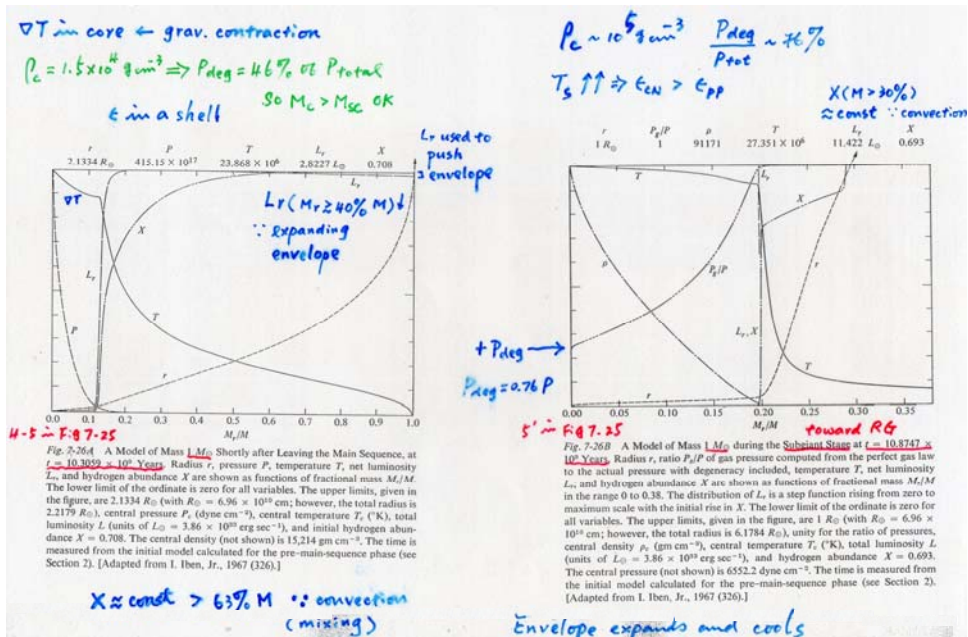 ∇T in core ← grav. contraction
ρc = 1.5×10⁴ g cm⁻³ ⇒ Pdeg = 46% of Ptotal
So Mc > Msc OK
ε in a shell
Lr used to
push
envelope
r P T Lr X
2.1334 R⊙ 415.15 × 10¹⁷ 23.868 × 10⁶ 2.8227 L⊙ 0.708
∇T
Lr
Lr (Mr ≥ 40% M) ↓
∵ expanding
envelope
X
Lr
P
T
r
0.0 0.1 0.2 0.3 0.4 0.5 0.6 0.7 0.8 0.9 1.0
Mr/M
4-5 in Fig 7-25
Fig. 7-26A A Model of Mass 1 M⊙ Shortly after Leaving the Main Sequence, at
t = 10.3059 × 10⁹ Years. Radius r, pressure P, temperature T, net luminosity
Lr, and hydrogen abundance X are shown as functions of fractional mass Mr/M.
The lower limit of the ordinate is zero for all variables. The upper limits, given in
the figure, are 2.1334 R⊙ (with R⊙ = 6.96 × 10¹⁰ cm; however, the total radius is
2.2179 R⊙), central pressure Pc (dyne cm⁻²), central temperature Tc (°K), total
luminosity L (units of L⊙ = 3.86 × 10³³ erg sec⁻¹), and initial hydrogen abun-
dance X = 0.708. The central density (not shown) is 15,214 gm cm⁻³. The time is
measured from the initial model calculated for the pre-main-sequence phase (see
Section 2). [Adapted from I. Iben, Jr., 1967 (326).]
X ≈ const > 63% M ∵ convection
(mixing)
ρc ~ 10⁵ g cm⁻³ Pdeg/Ptot ~ 76%
Ts ↑↑ ⇒ εCN > εpp
X (M > 30%)
≈ const ∵ convection
r Pg/P ρ T Lr X
1 R⊙ 1 91171 27.351 × 10⁶ 11.422 L⊙ 0.693
T
Lr
X
ρ
Pg/P
r
Lr, X
T
r
+ Pdeg →
Pdeg = 0.76 P
0.00 0.05 0.10 0.15 0.20 0.25 0.30 0.35
Mr/M
5' in Fig 7.25
toward RG
Fig. 7-26B A Model of Mass 1 M⊙ during the Subgiant Stage at t = 10.8747 ×
10⁹ Years. Radius r, ratio Pg/P of gas pressure computed from the perfect gas law
to the actual pressure with degeneracy included, temperature T, net luminosity
Lr, and hydrogen abundance X are shown as functions of fractional mass Mr/M
in the range 0 to 0.38. The distribution of Lr is a step function rising from zero to
maximum scale with the initial rise in X. The lower limit of the ordinate is zero for
all variables. The upper limits, given in the figure, are 1 R⊙ (with R⊙ = 6.96 ×
10¹⁰ cm; however, the total radius is 6.1784 R⊙), unity for the ratio of pressures,
central density ρc (gm cm⁻³), central temperature Tc (°K), total luminosity L
(units of L⊙ = 3.86 × 10³³ erg sec⁻¹), and hydrogen abundance X = 0.693.
The central pressure (not shown) is 6552.2 dyne cm⁻². The time is measured from
the initial model calculated for the pre-main-sequence phase (see Section 2).
[Adapted from I. Iben, Jr., 1967 (326).]
Envelope expands and cools